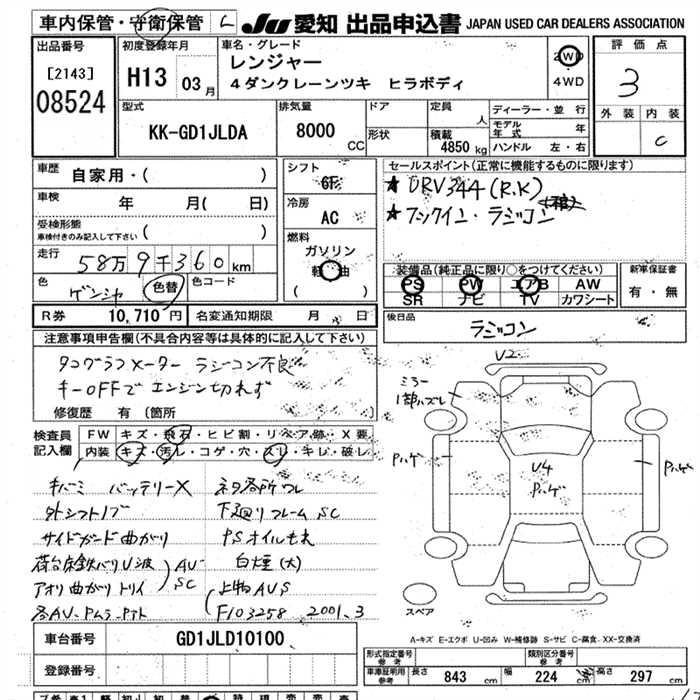 車内保管・守衛保管 L JU 愛知 出品申込書 JAPAN USED CAR DEALERS ASSOCIATION
出品番号 [2143] 08524
初度登録年月 H13 03月
車名・グレード レンジャー
4ダンクレーンツキ ヒラボディ
2WD 4WD
評価点 3
外装 内装 C
型式 KK-GD1JLDA
排気量 8000 CC
ドア 形状
定員 人
積載 4850 kg
ディーラー・並行
モデル年式 年
ハンドル 左・右
車歴 自家用・( )
車検 年 月( 日)
受検形態 車検付きのみ記入して下さい ( )
走行 58万9千360km
色 ゲンシャ 色替 色コード
R券 10,710円 名変通知期限 月 日
シフト 6F
冷房 AC
燃料 ガソリン 軽油 ( )
セールスポイント(正常に機能するものに限ります)
★URV344(R.K)
★フックイン・ラジコン
装備品(純正品に限り○をつけてください)
PS PW エアB AW
SR ナビ TV カワシート
新車保証書 有・無
後日品 ラジコン
注意事項申告欄(不具合内容等は具体的に記入して下さい)
タコグラフメーター ラジコン不良
キーOFFでエンジン切れず
修復歴 有〔箇所
検査員記入欄
FW キズ・飛石・ヒビ割・リペア跡・X要
内装 キズ・汚レ・コゲ・穴・スレ・キレ・破レ
キバミ バッテリーX
外シフトノブ
下廻りフレームSC
サイドガード曲がり
PSオイルモレ
白煙(大)
AV SC
アオリ曲がり トリイ
上物AVS
F103258 2001.3
U2
ミラー 1部ハズレ
Pハゲ
U4 Pハゲ
Pハゲ
スペア
A-キズ E-エクボ U-凹み W-補修跡 S-サビ C-腐食 XX-交換済
車台番号 GD1JLD10100
登録番号
形式指定番号 参考
類別区分番号 参考
車庫証明用 参考 長さ 843 cm 幅 224 cm 高さ 297 cm